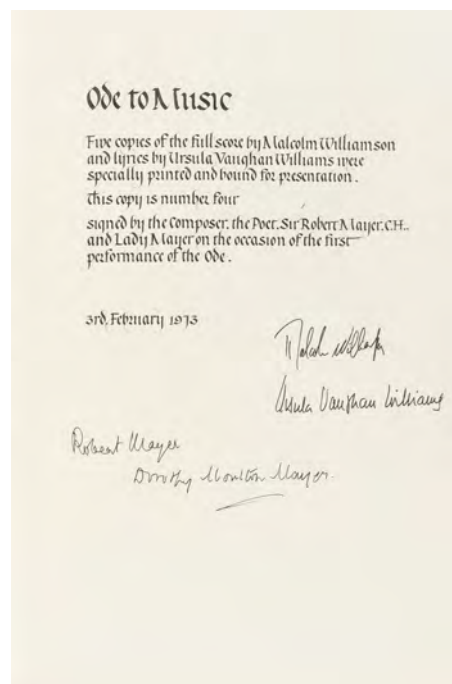 Ode to Music
Five copies of the full score by Malcolm Williamson
and lyrics by Ursula Vaughan Williams were
specially printed and bound for presentation.
This copy is number four
signed by the Composer, the Poet, Sir Robert Mayer, C.H.,
and Lady Mayer on the occasion of the first
performance of the Ode.
3rd, February 1973
Malcolm Williamson
Ursula Vaughan Williams
Robert Mayer
Dorothy Moulton Mayer.